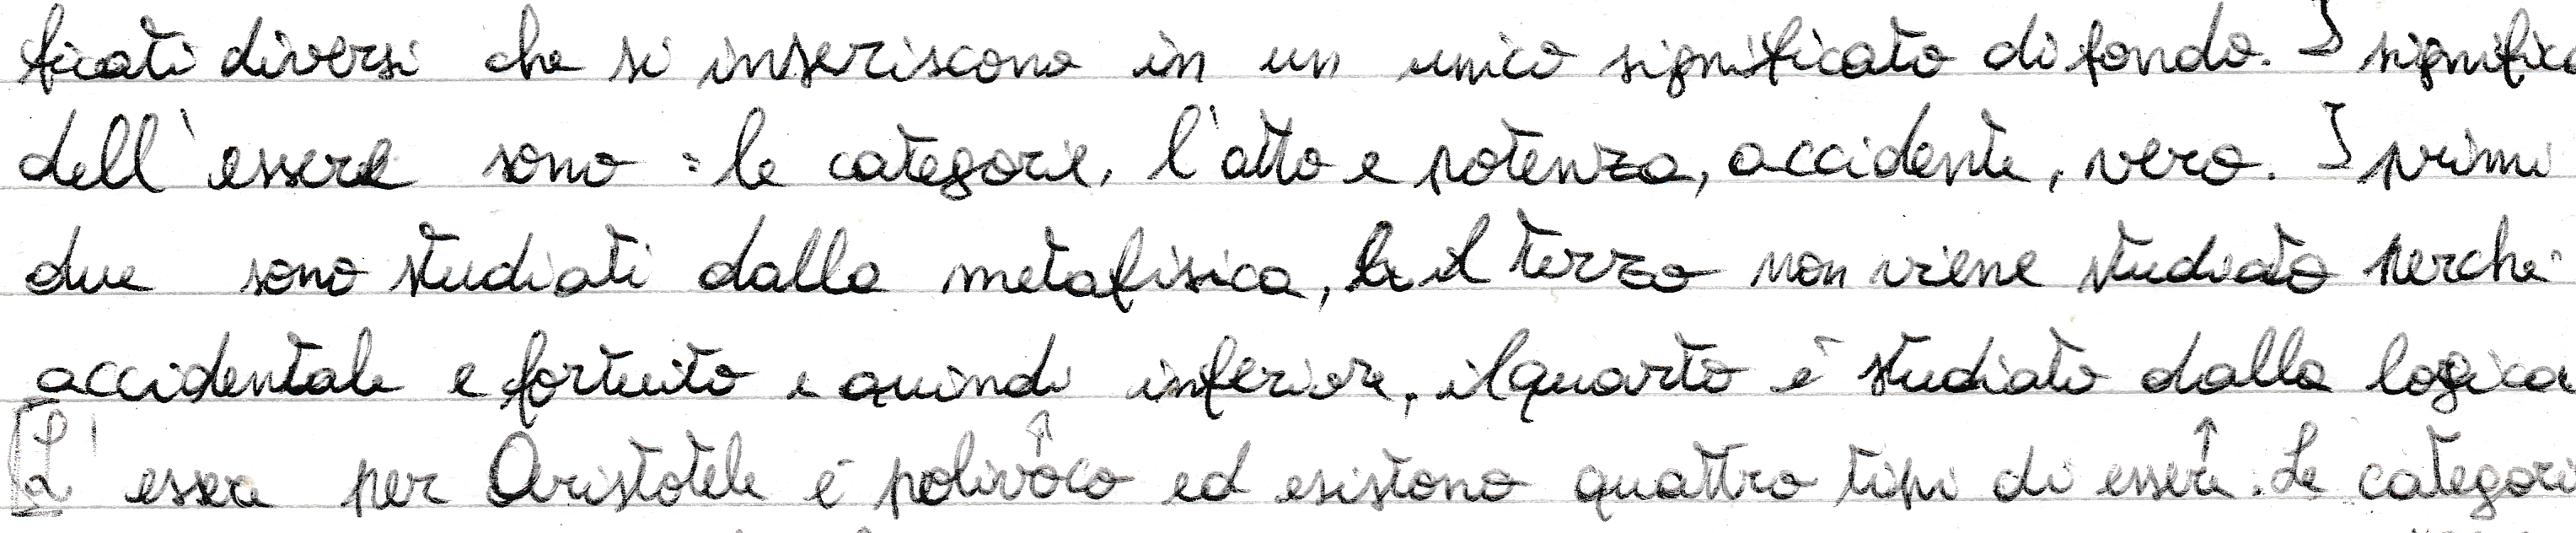 ficati diversi che si inseriscono in un unico significato di fondo. I significa
dell'essere sono: le categorie, l'atto e potenza, accidente, vero. I primi
due sono studiati dalla metafisica, il terzo non viene studiato perché
accidentale e fortuito e quindi inferiore, il quarto è studiato dalla logica
[L'essere per Aristotele è polivoco ed esistono quattro tipi di essere. Le categori